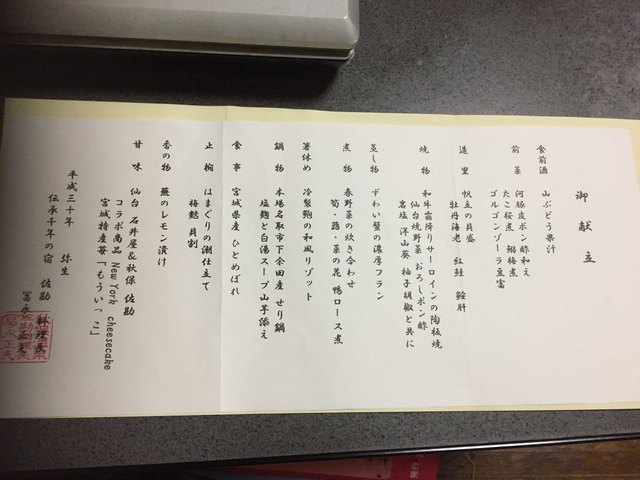 御献立
食前酒 山ぶどう果汁
前菜 河豚皮ポン酢和え
たこ桜煮 鯛梅煮
ゴルゴンゾーラ豆富
造里 帆立の貝盛
牡丹海老 紅鮭 鮟肝
焼物 和牛霜降りサーロインの陶板焼
仙台焼野菜 おろしポン酢
岩塩 洋山葵 柚子胡椒と共に
蒸し物 ずわい蟹の濃厚フラン
煮物 春野菜の炊き合わせ
筍・蕗・菜の花 鴨ロース煮
箸休め 冷製鮑の和風リゾット
鍋物 本場名取市下余田産 せり鍋
塩麹と白湯スープ 山芋添え
食事 宮城県産 ひとめぼれ
止椀 はまぐりの潮仕立て
梅麩 貝割
香の物 蕪のレモン漬け
甘味 仙台 石井屋&秋保 佐勘
コラボ商品 New York cheesecake
宮城特産苺「もういっこ」
平成三十年 弥生
伝承千年の宿 佐勘
料理長
冨永 正夫